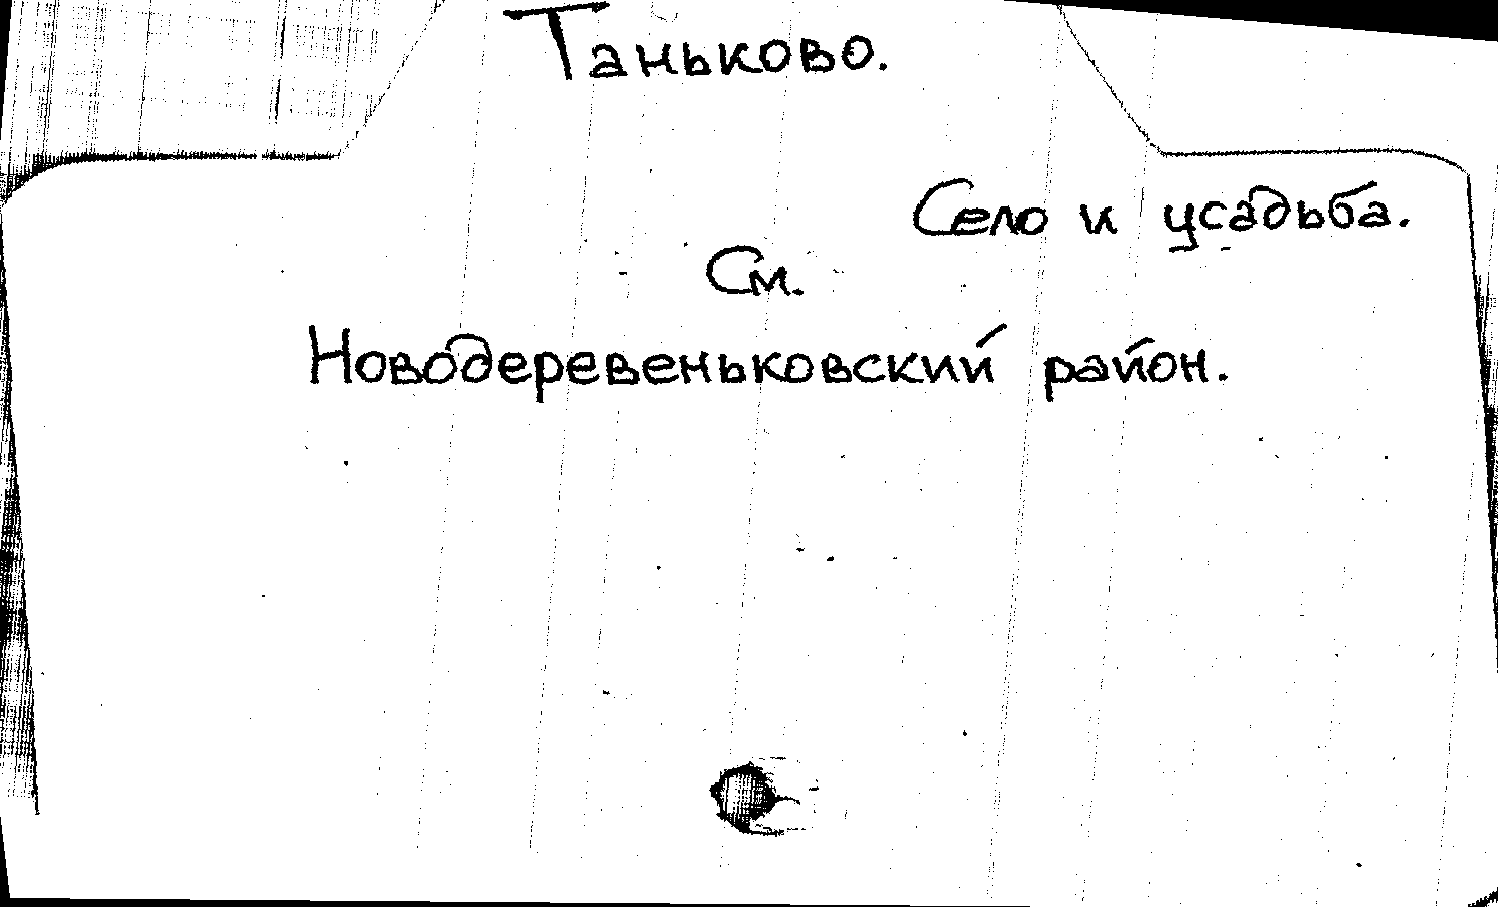 Таньково.
Село и усадьба.
См.
Новодеревеньковский район.